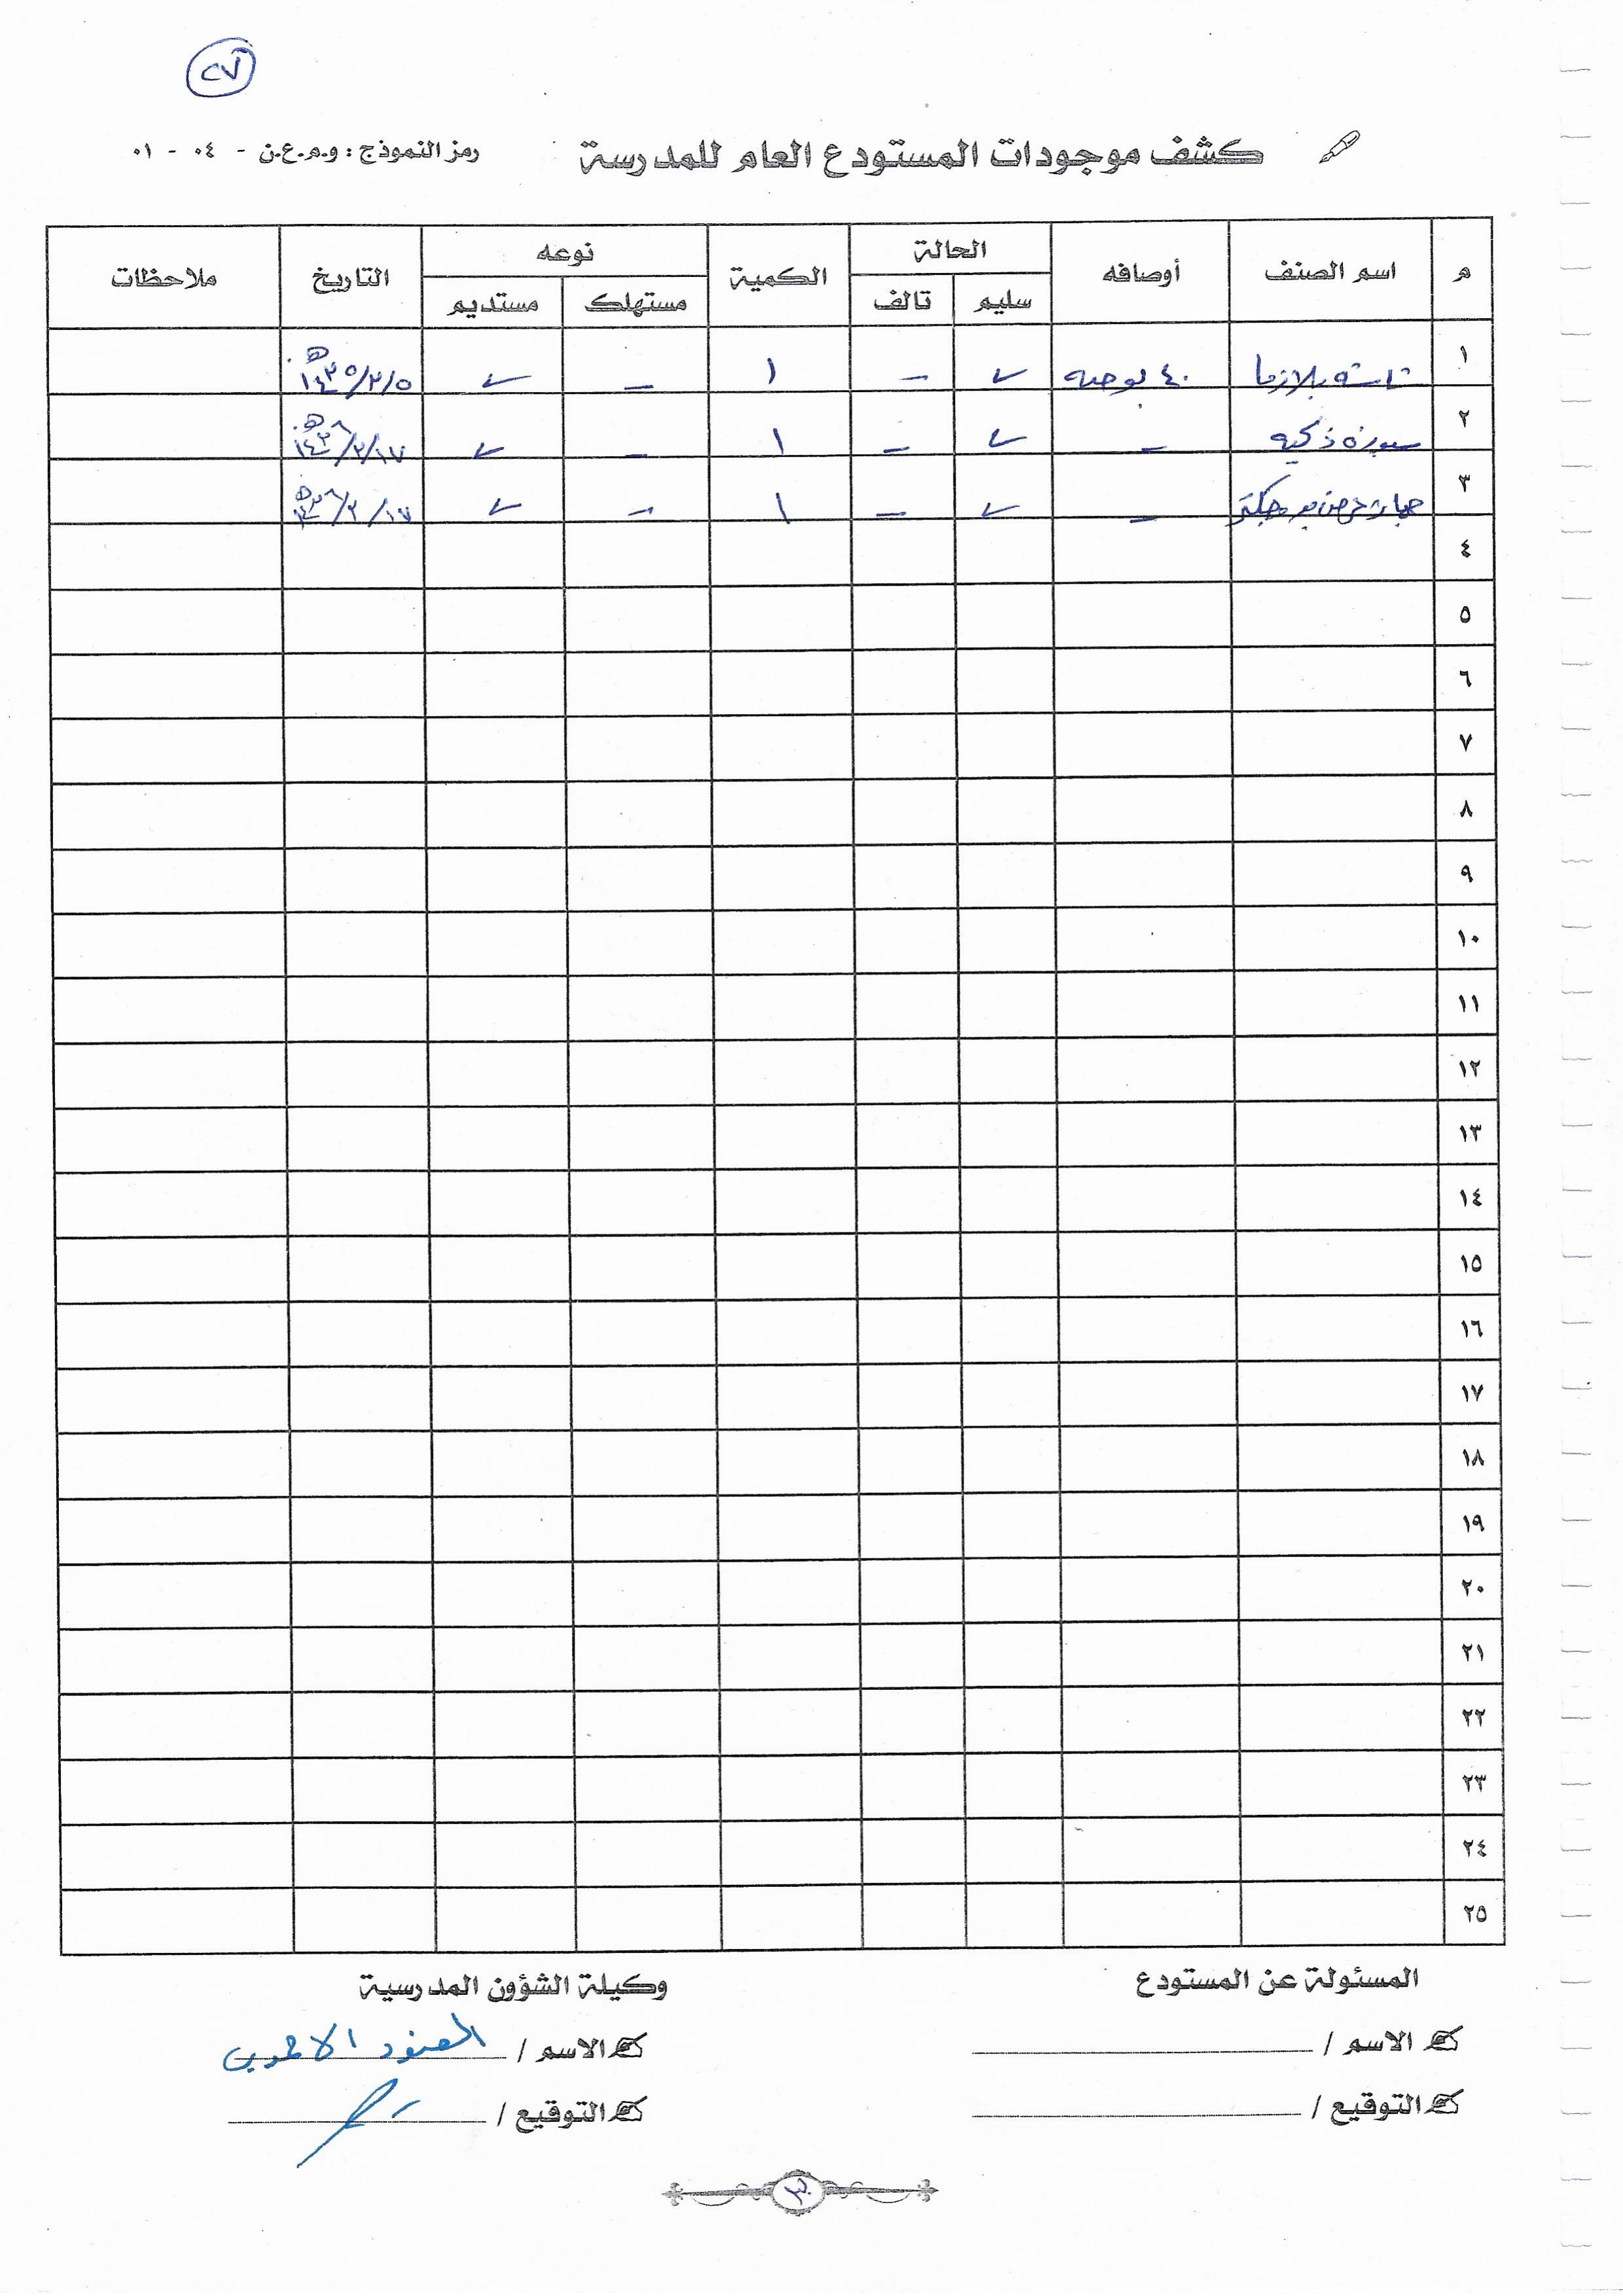 ٢٧
كشف موجودات المستودع العام للمدرسة
رمز النموذج : و.م.ع.ن - ٠٤ - ٠١
م اسم الصنف أوصافه الحالة الكمية نوعه التاريخ ملاحظات
سليم تالف مستهلك مستديم
١ شاشه بلازما ٤٠ بوصه ✓ - ١ - ✓ ١٤٣٥/٢/٥ هـ
٢ سبوره ذكيه - ✓ - ١ - ✓ ١٤٣٦/٢/١٧ هـ
٣ جهاز عرض بروجكتر - ✓ - ١ - ✓ ١٤٣٦/٢/١٧ هـ
٤
٥
٦
٧
٨
٩
١٠
١١
١٢
١٣
١٤
١٥
١٦
١٧
١٨
١٩
٢٠
٢١
٢٢
٢٣
٢٤
٢٥
المسئولة عن المستودع
الاسم /
التوقيع /
وكيلة الشؤون المدرسية
الاسم / العنود
التوقيع /